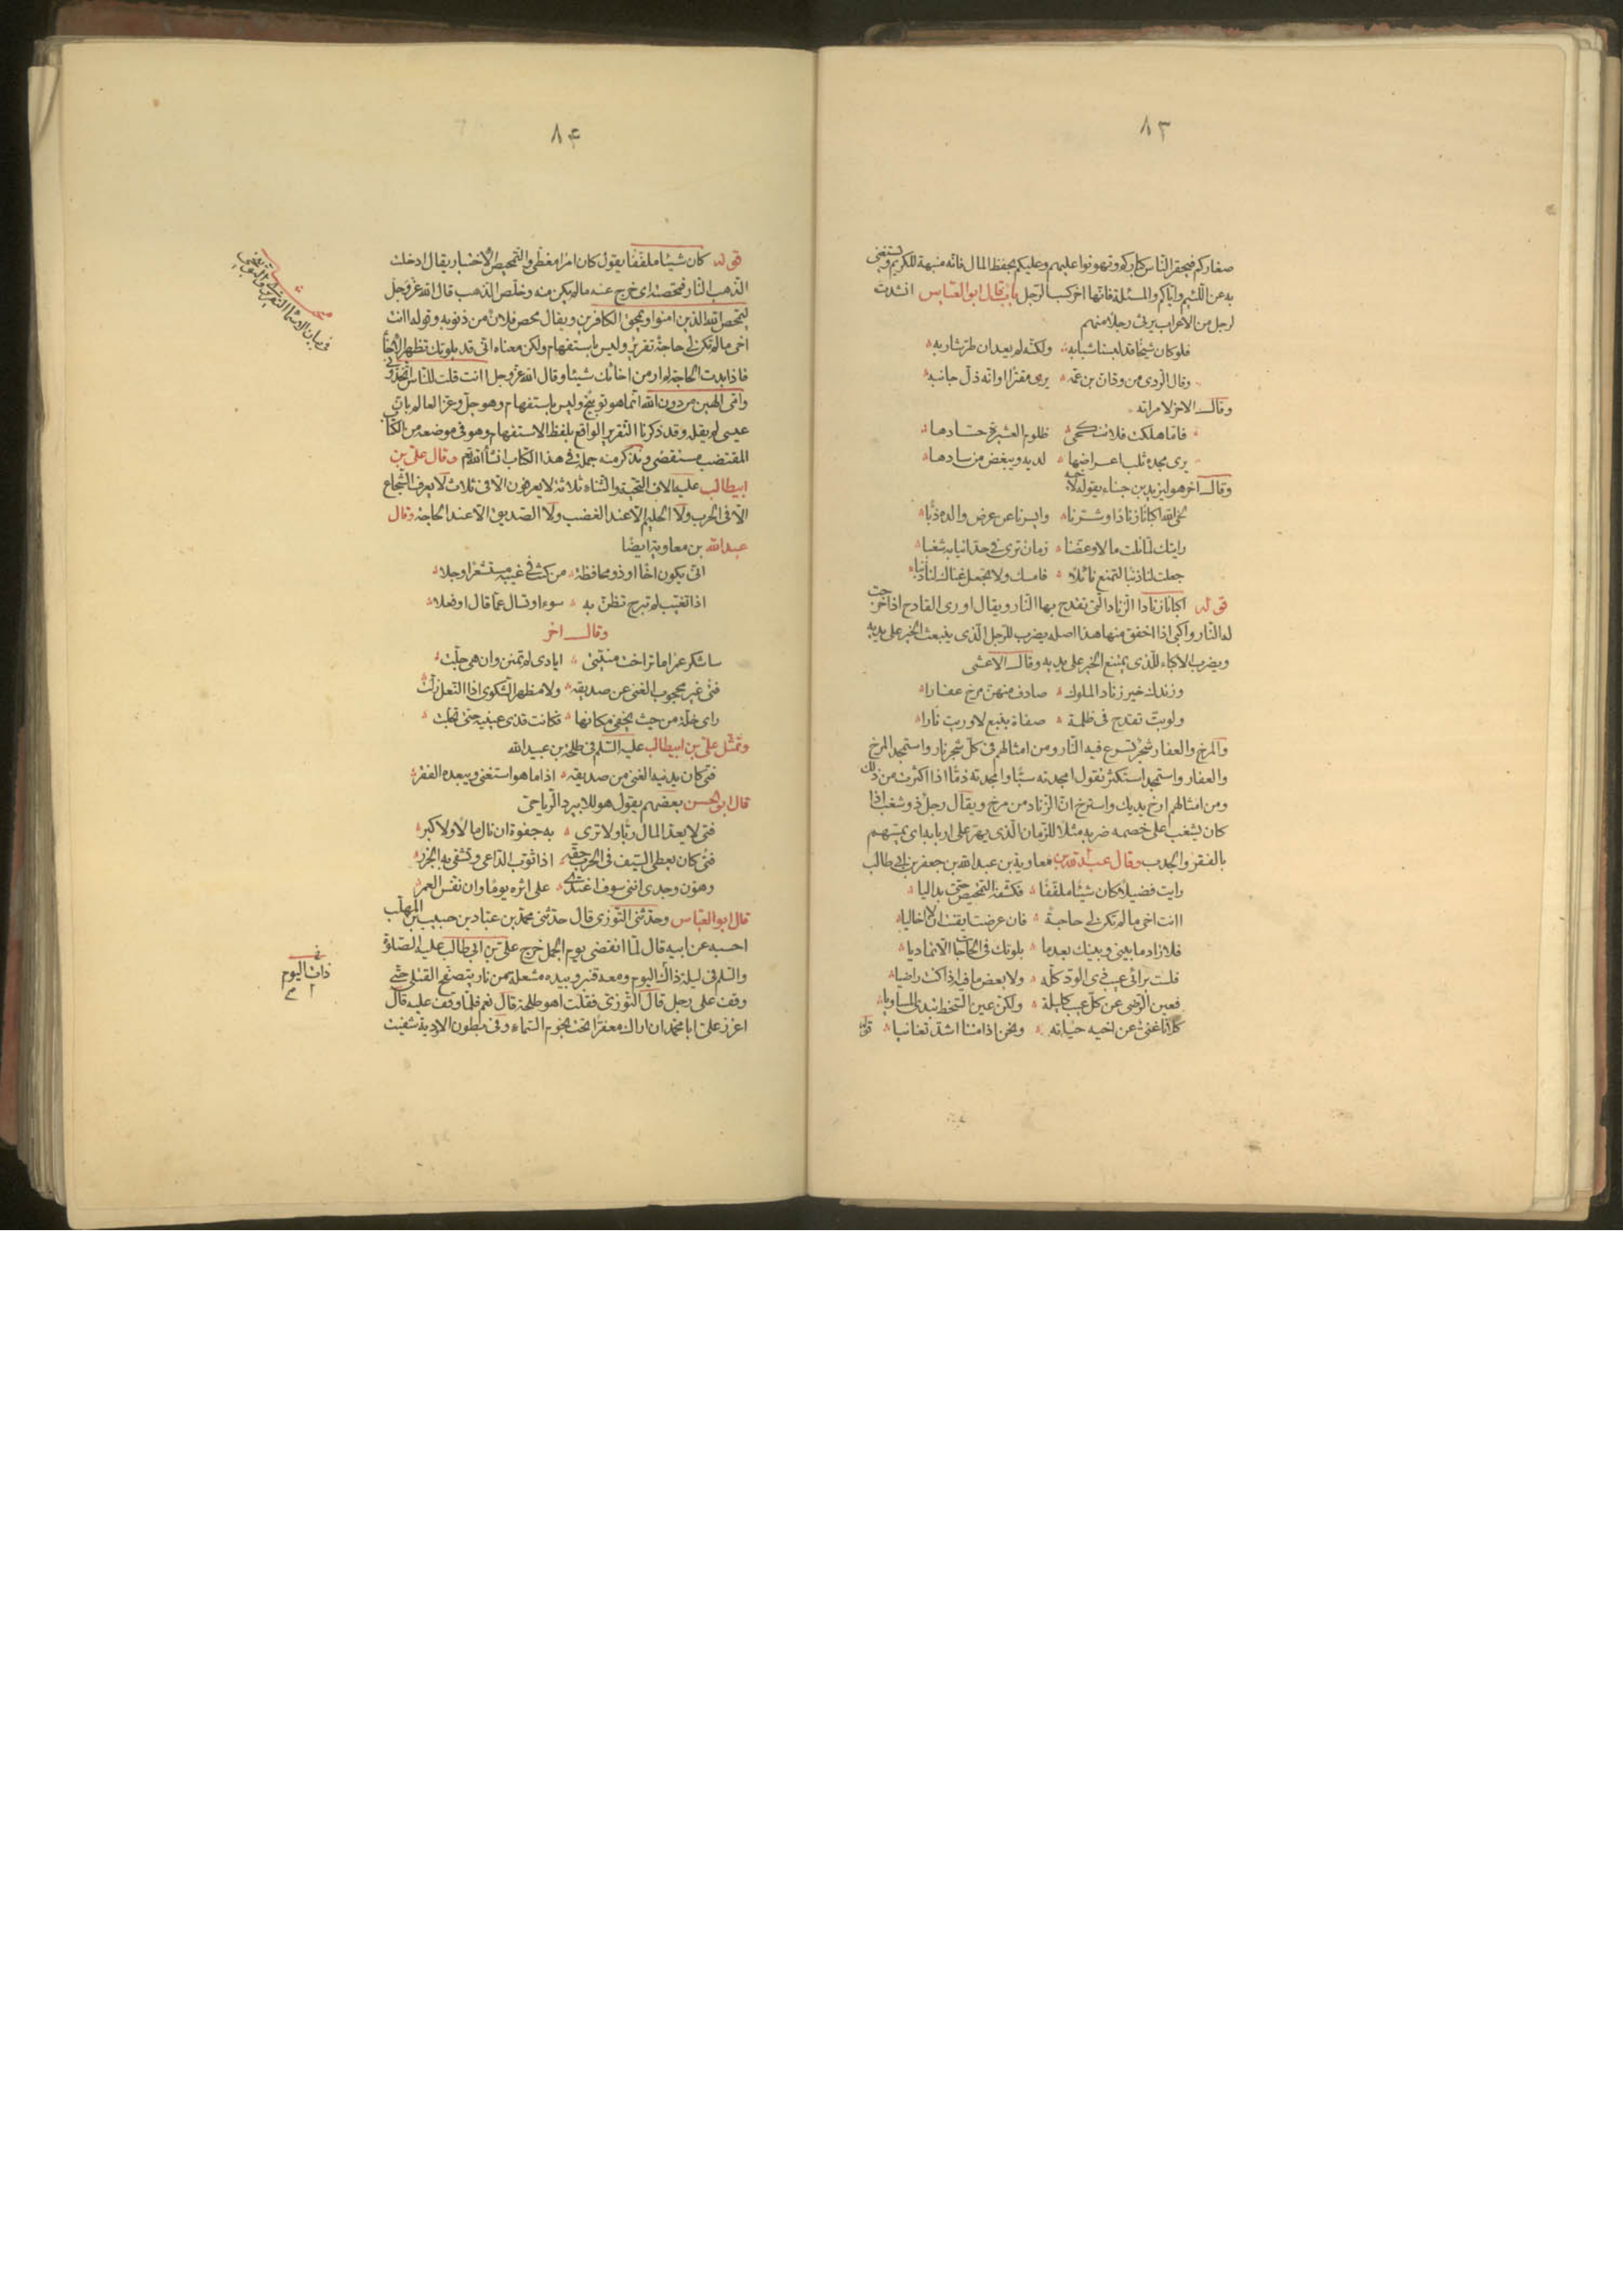 ٨٣
صغاركم فيحقر الناس كباركم وتهونوا عليهم وعليكم بحفظ المال فانه منبهة للكريم ويستغنى
به عن اللئيم واياكم والمسئلة فانها اخر كسب الرجل باب قال ابو العباس انشدت
لرجل من الاعراب يرثى رجلا منهم
فلو كان شيخا قد لبسنا شبابه ولكنه لم يعد ان طر شاربه
وقاك الردى من ودان بن عمه يرى مقترا او انه ذل جانبه
وقال الاخر لامراته
فاما هلكت فلا تنكحى ظلوم العشيرة حسادها
يرى مجده ثلب اعراضها لديه ويبغض من سادها
وقال اخر هو ليزيد بن حبناء يقوله لاخيه
لحى الله اكبانا زنادا وشرنا وايسرنا عن عرض والده ذبا
رايتك لما نلت مالا وعضنا زمان ترى فى حد انيابه شغبا
جعلت لنا ذنبا لتمنع نائلا فامسك ولا تجعل غناك لنا ذنبا
قوله اكبانا زنادا الزناد التى تقدح بها النار ويقال اورى القادح اذا خرجت
له النار واكبى اذا اخفق منها هذا اصله يضرب للرجل الذى ينبعث الخير على يديه
ويضرب الاكباء للذى يمتنع الخير على يديه وقال الاعشى
وزندك خير زناد الملوك صادف منهن مرخ عفارا
ولو بت تقدح فى ظلمة صفاة بنبع لاوريت نارا
والمرخ والعفار شجر تسرع فيه النار ومن امثالهم فى كل شجر نار واستمجد المرخ
والعفار واستمجد استكثر تقول امجدته سبا وامجدته ذما اذا اكثرت من ذلك
ومن امثالهم ارخ يديك واسترخ ان الزناد من مرخ ويقال رجل ذو شغب اذا
كان يشغب على خصمه ضربه مثلا للزمان الذى يهر على اربابه اى يمسهم
بالفقر والجدب وقال عبد الله بن معاوية بن عبد الله بن جعفر بن ابى طالب
رايت فضيلا كان شيئا ملففا فكشفه التمحيص حتى بدا ليا
اانت اخى ما لم تكن لى حاجة فان عرضت ايقنت ان لا اخا ليا
فلا زاد ما بينى وبينك بعدما بلوتك فى الحاجات الا تماديا
فلست برائى عيب ذى الود كله ولا بعض ما فيه اذا كنت راضيا
فعين الرضى عن كل عيب كليلة ولكن عين السخط تبدى المساويا
كلانا غنى عن اخيه حياته ونحن اذا متنا اشد تغانيا
قوله
٨٤
قوله كان شيئا ملففا يقول كان امرا مغطى والتمحيص الاختبار يقال ادخلت
الذهب النار فمحصته اى خرج عنه ما لم يكن منه وخلص الذهب قال الله عز وجل
ليمحص الله الذين امنوا ويمحق الكافرين ويقال محص فلان من ذنوبه وقوله اانت
اخى ما لم تكن لى حاجة تقرير وليس باستفهام ولكن معناه انى قد بلوتك تظهر الاخاء
فاذا بدت الحاجة لم ار من اخائك شيئا وقال الله عز وجل اانت قلت للناس اتخذونى
وامى الهين من دون الله انما هو توبيخ وليس باستفهام وهو جل وعز العالم بان
عيسى لم يقله وقد ذكرنا التقرير الواقع بلفظ الاستفهام وهو فى موضعه من الكتاب
المقتضب مستقصى ونذكر منه جملة فى هذا الكتاب انشاالله تم وقال على بن
ابيطالب عليه الاف التحية والثناء ثلاثة لا يعرفون الا فى ثلاث لا يعرف الشجاع
الا فى الحرب ولا الحليم الا عند الغضب ولا الصديق الا عند الحاجة وقال
عبد الله بن معاوية ايضا
انى يكون اخا او ذو محافظة من كنت فى غيبه مستشعرا وجلا
اذا تغيب لم تبرح تظن به سوءا وتسال عما قال او فعلا
وقال اخر
ساشكر عمرا ما تراخت منيتى ايادى لم تمنن وان هى جلت
فتى غير محجوب الغنى عن صديقه ولا مظهر الشكوى اذا النعل زلت
راى خلة من حيث يخفى مكانها فكانت قذى عينيه حتى تجلت
وتمثل على بن ابيطالب عليه السلم فى طلحة بن عبيد الله
فتى كان يدنيه الغنى من صديقه اذا ما هو استغنى ويبعده الفقر
قال ابو الحسن بعضهم يقول هو للابيرد الرياحى
فتى لا يعد المال ربا ولا ترى به جفوة ان نال مالا ولا كبر
فتى كان يعطى السيف فى الحرب حقه اذا ثوب الداعى وتشقى به الجزر
وهون وجدى اننى سوف اغتدى على اثره يوما وان نفس العمر
قال ابو العباس وحدثنى التوزى قال حدثنى محمد بن عباد بن حبيب بن المهلب
احسبه عن ابيه قال لما انقضى يوم الجمل خرج على بن ابى طالب عليه الصلوة
والسلم فى ليلة ذاك اليوم ومعه قنبر وبيده مشعلة من نار يتصفح القتلى حتى
وقف على رجل قال التوزى فقلت اهو طلحة قال نعم فلما وقف عليه قال
اعزز على ابا محمد ان اراك معفرا تحت نجوم السماء وفى بطون الاودية شفيت
فى
ذات اليوم